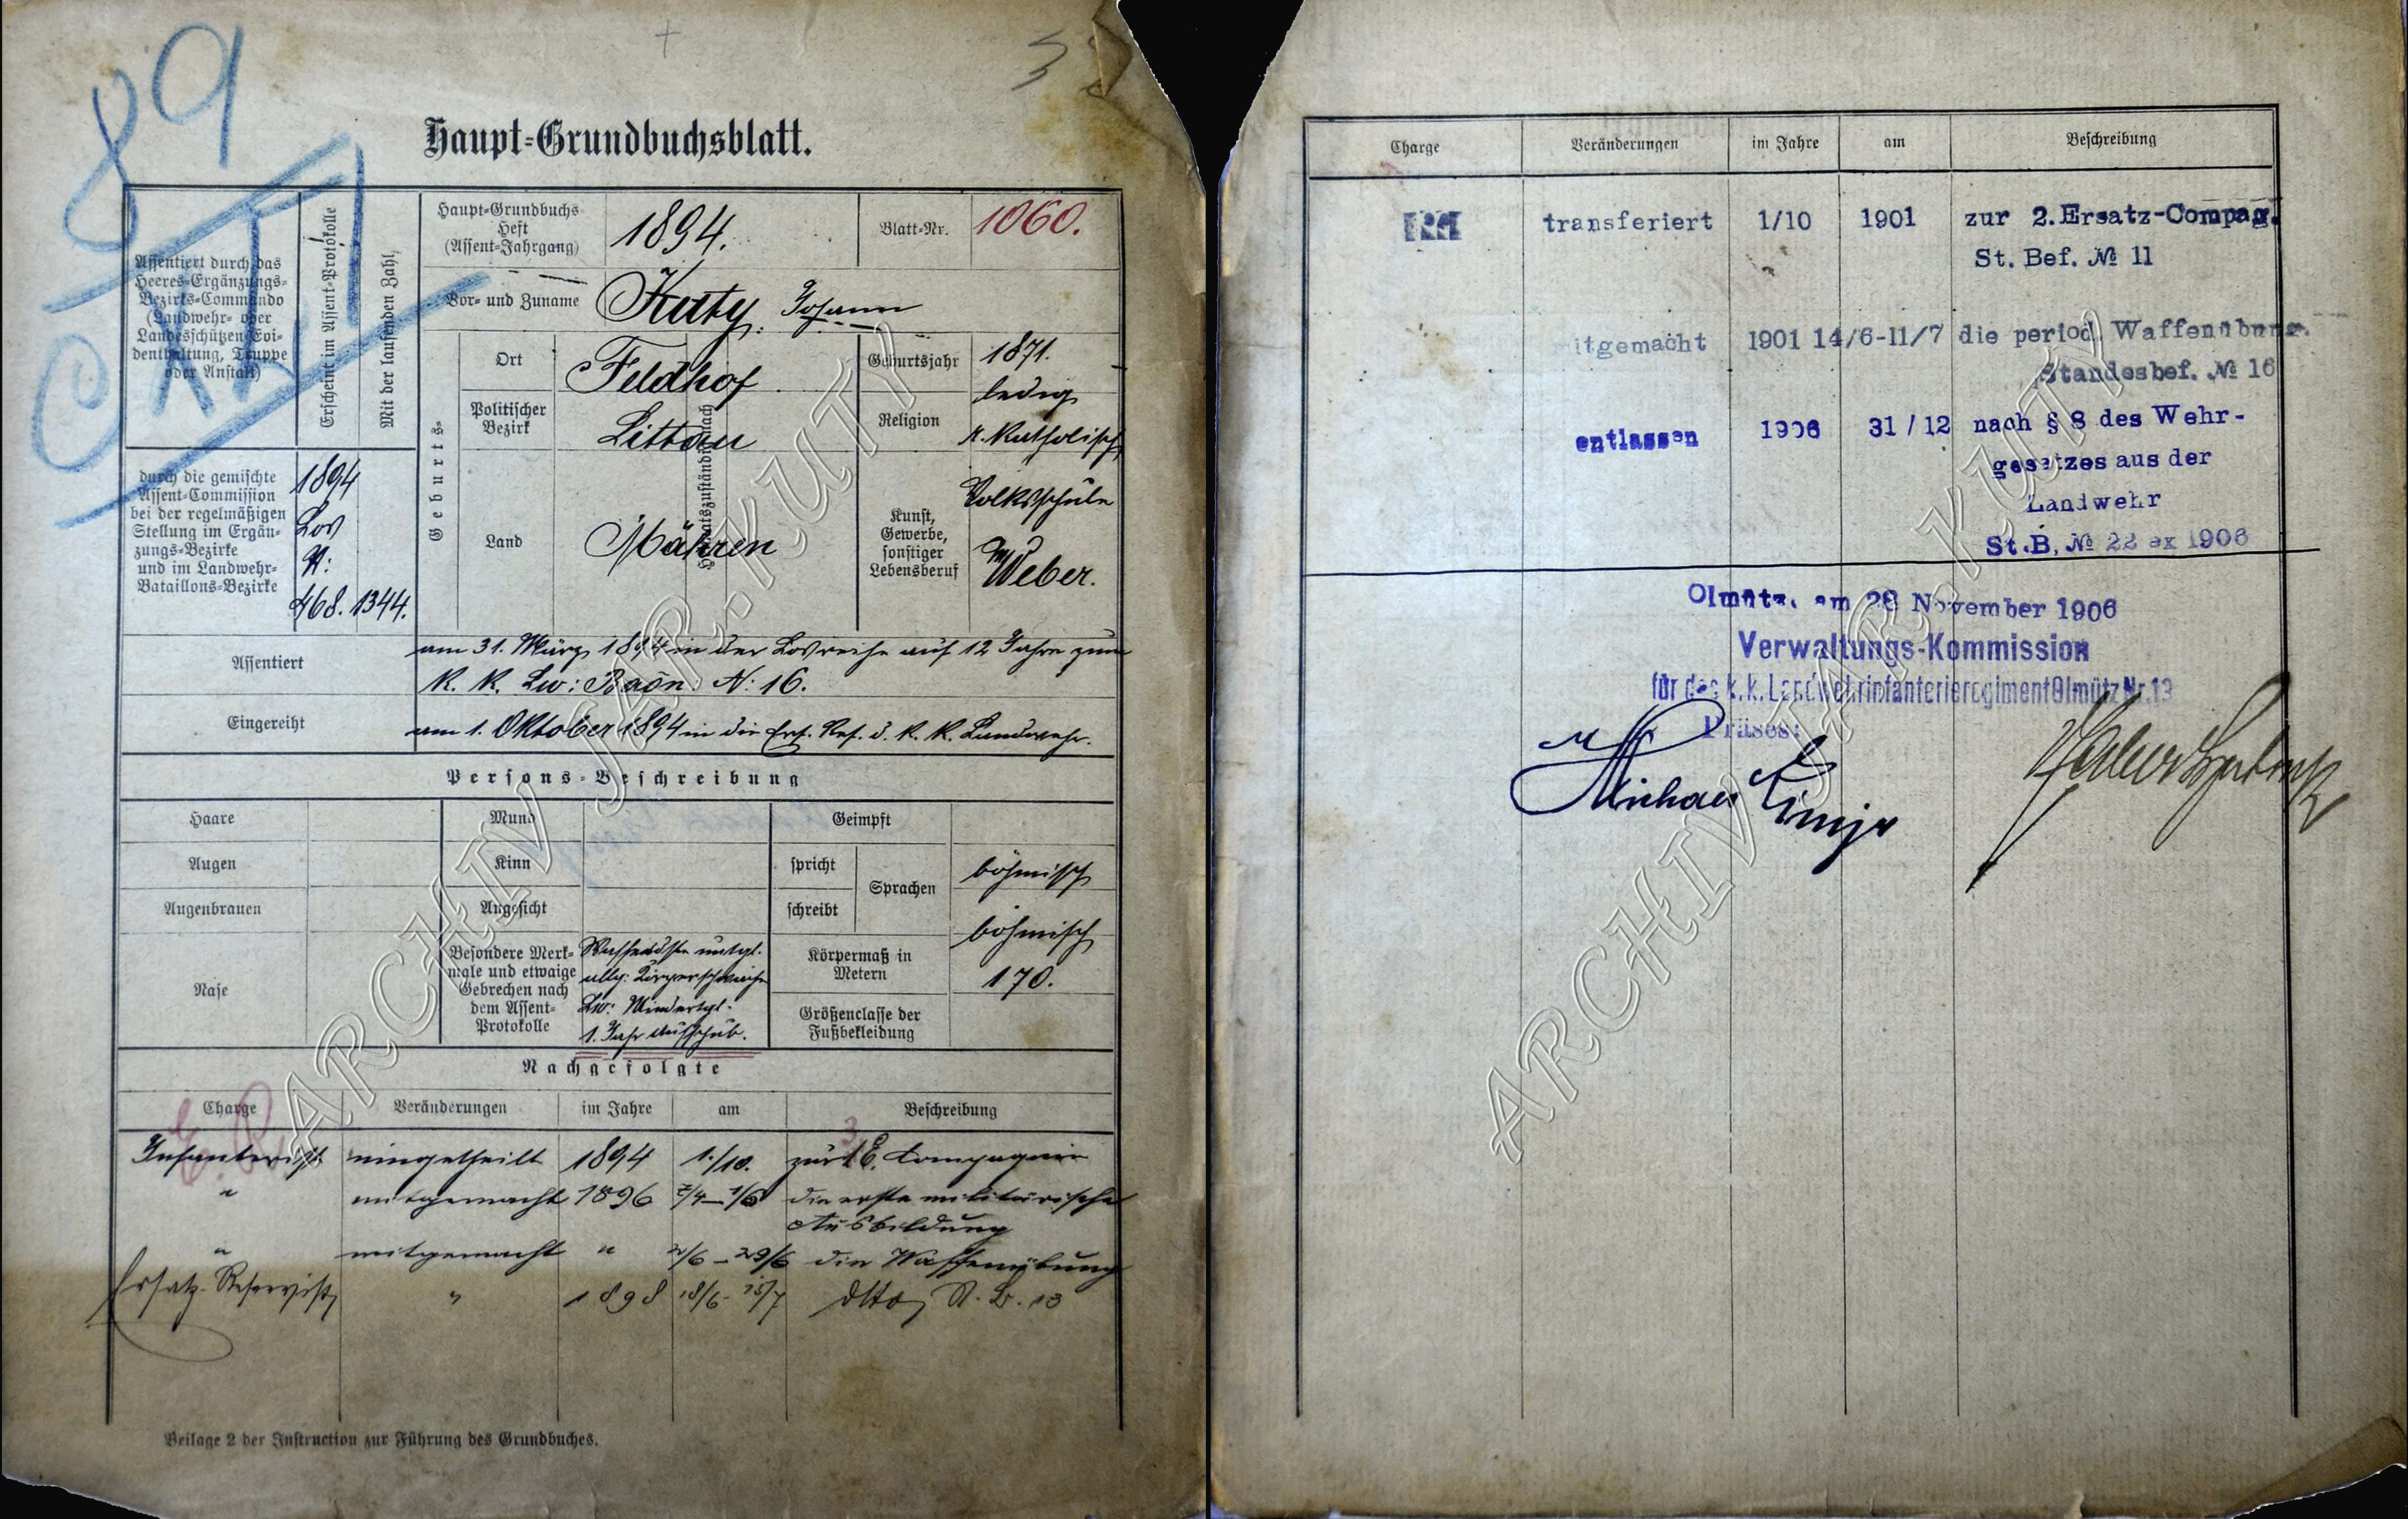 89
CXVI
Haupt-Grundbuchsblatt.
Assentiert durch das
Heeres-Ergänzungs-
Bezirks-Commando
(Landwehr- oder
Landesschützen-Evi-
denthaltung, Truppe
oder Anstalt)
Erscheint im Assent-Protokolle
Mit der laufenden Zahl
Haupt-Grundbuchs
Heft
(Assent-Jahrgang)
1894.
Blatt-Nr.
1060.
Vor- und Zuname
Kuty Johann
Geburts-
Ort
Feldhof
Politischer
Bezirk
Littau
Land
Mähren
Heimatszuständig nach
Geburtsjahr
1871.
ledig
Religion
r. katholisch
Kunst,
Gewerbe,
sonstiger
Lebensberuf
Volksschule
Weber.
durch die gemischte
Assent-Commission
bei der regelmäßigen
Stellung im Ergän-
zungs-Bezirke
und im Landwehr-
Bataillons-Bezirke
1894
Los
N:
468. 1344.
Assentiert
am 31. März 1894 in der Losreihe auf 12 Jahre zum
k. k. Lw: Baon. N: 16.
Eingereiht
am 1. Oktober 1894 in die Ers. Res. d. k. k. Landwehr.
Persons-Beschreibung
Haare
Mund
Geimpft
Augen
Kinn
spricht
Sprachen
böhmisch
Augenbrauen
Angesicht
schreibt
böhmisch
Nase
Besondere Merk-
male und etwaige
Gebrechen nach
dem Assent-
Protokolle
allg: Körperschwäche
Lw: Mindertgl.
1. Jahr Aufschub.
Körpermaß in
Metern
170.
Größenclasse der
Fußbekleidung
Nachgefolgte
Charge
Veränderungen
im Jahre
am
Beschreibung
E. R.
Infanterist eingetheilt 1894 1./10. zur E. Compagnie
3
" mitgemacht 1896 /4-1/6 die erste militärische
Ausbildung
" mitgemacht " 2/6-29/6 die Waffenübung
Ersatz-Reservist " 1898 18/6-15/7 dtto St. B. 13
Beilage 2 der Instruction zur Führung des Grundbuches.
Charge
Veränderungen
im Jahre
am
Beschreibung
transferiert 1/10 1901 zur 2.Ersatz-Compag.
St. Bef. № 11
itgemacht 1901 14/6-11/7 die period. Waffenübung.
Standesbef. № 16
entlassen 1906 31/12 nach § 8 des Wehr-
gesetzes aus der
Landwehr
St.B. № 22 ex 1906
Olmütz, am 28 November 1906
Verwaltungs-Kommission
für das k.k. Landwehrinfanterieregiment Olmütz Nr.13
Präses:
ARCHIV JAR. KUTÝ
ARCHIV JAR. KUTÝ